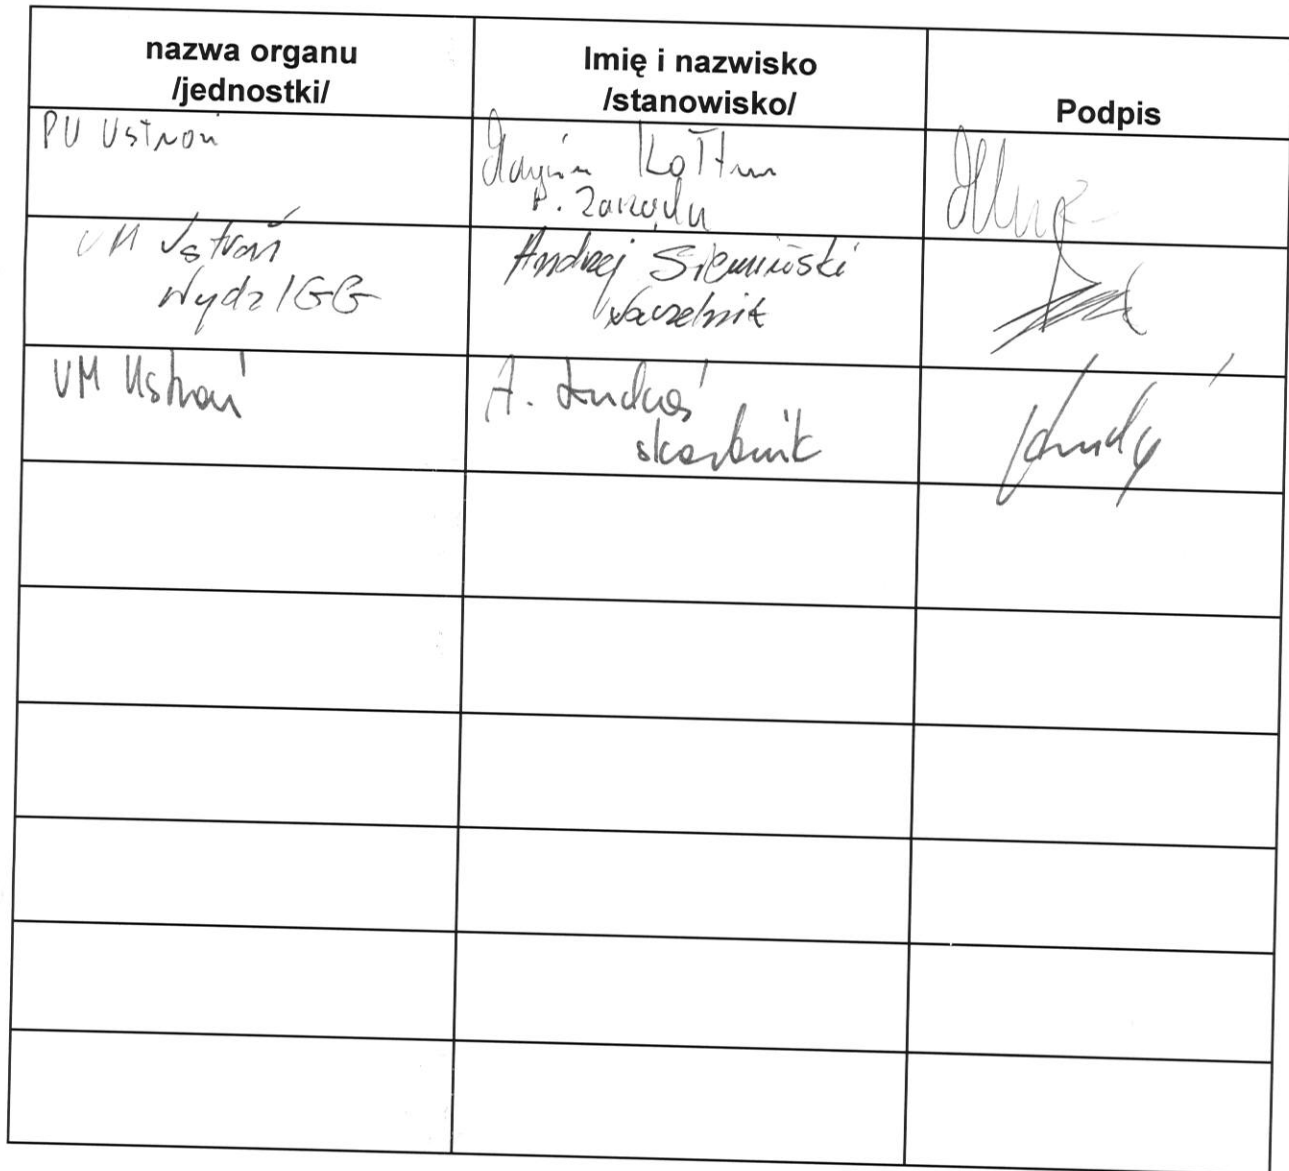 nazwa organu
/jednostki/
Imię i nazwisko
/stanowisko/
Podpis
PU Ustroń
Kołtun
P. Zarządu
UM Ustroń
Wydz IGG
Andrzej Siemiński
Naczelnik
UM Ustroń
A.
skarbnik